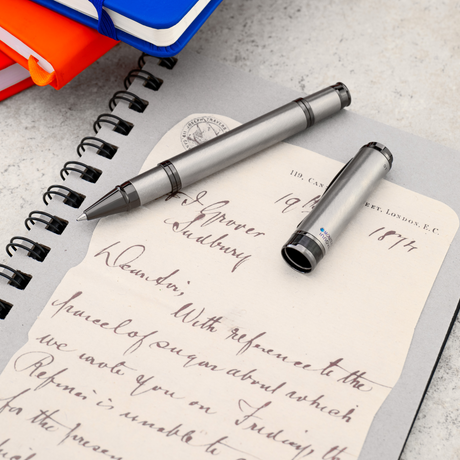 119, CAN EET, LONDON, E.C.
19th 1874
Sudbury
Dear Sir,
With reference to the
parcel of sugar about which
we wrote you on Friday, the
Refiner is unable to
for the present